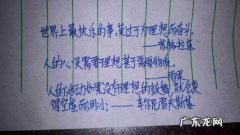 世界上最快乐的事,莫过于为理想而奋斗。
——苏格拉底
人的心只需要理想甚于需要物质。
——雨果
人的活动如果没有理想的鼓舞,就会变
得空虚而渺小。——车尔尼雪夫斯基
广东龙网